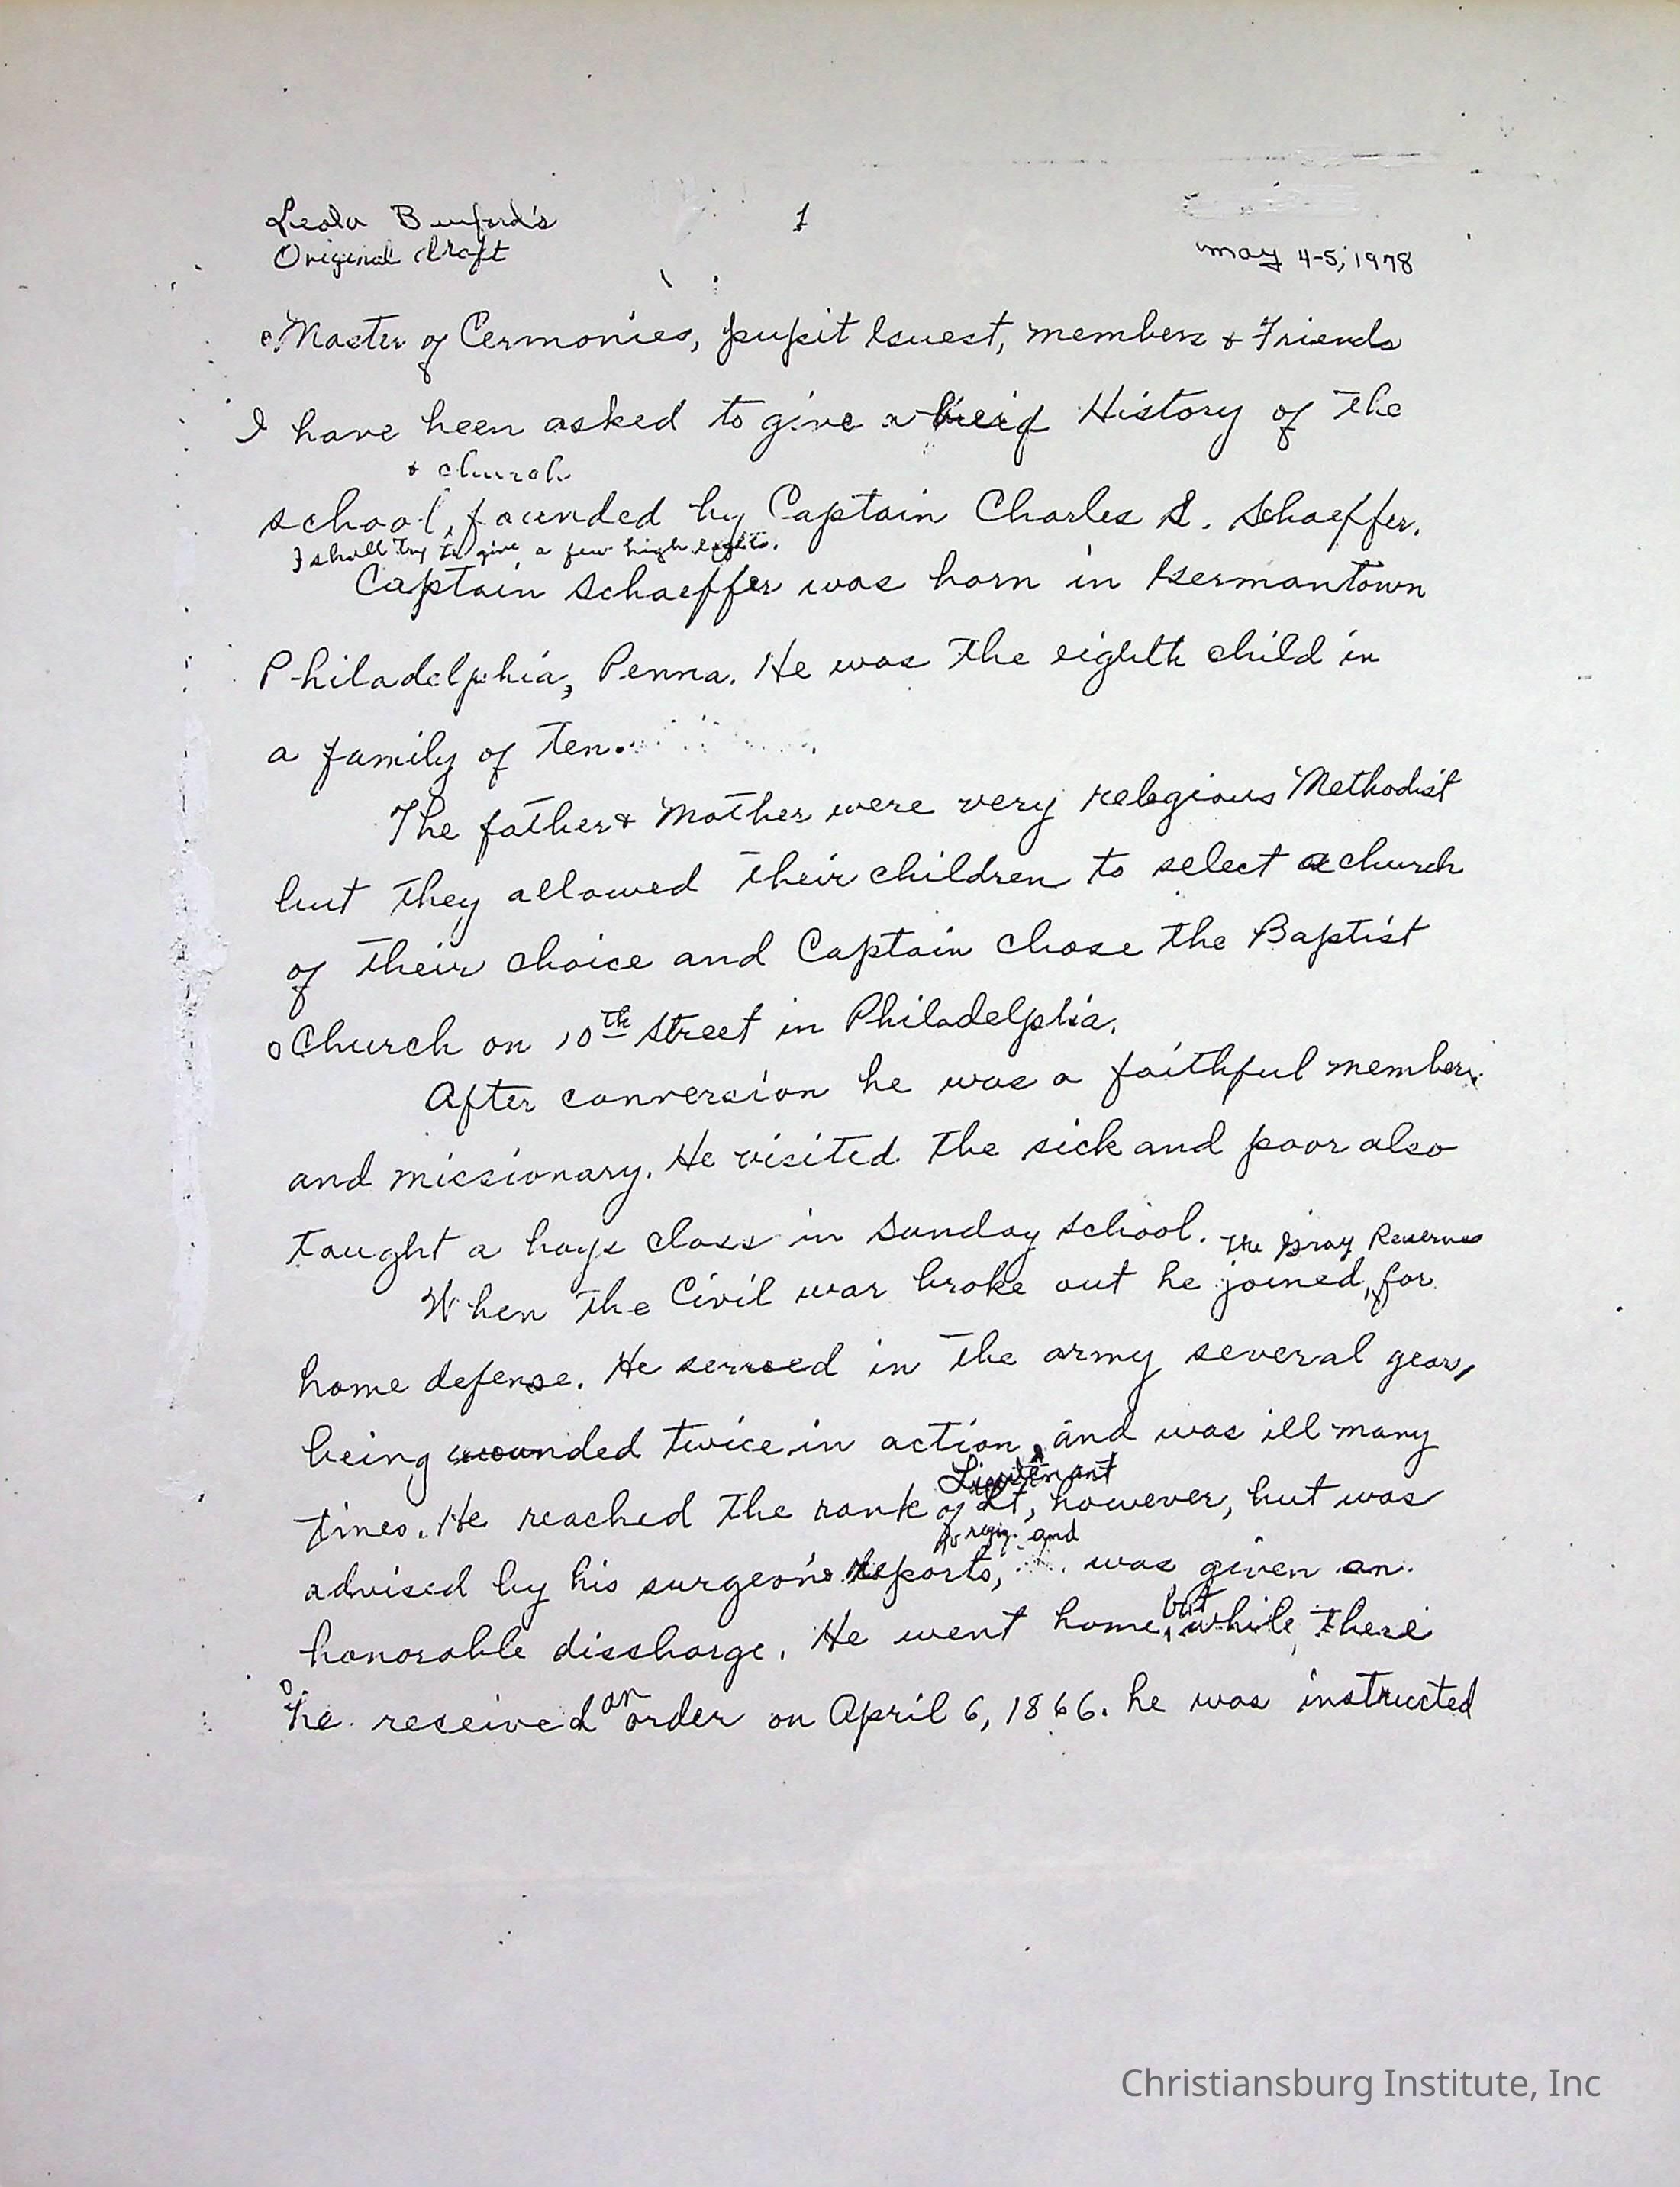 Leola Burford's
1
Original draft
may 4-5, 1978
Master of Cermonies, pupit Guest, members & Friends
I have been asked to give a brief History of the
& church
school, founded by Captain Charles S. Schaeffer.
I shall try to give a few high lights.
Captain Schaeffer was born in Germantown
Philadelphia, Penna. He was the eighth child in
a family of ten.
The father & Mother were very religious Methodist
but they allowed their children to select a church
of their choice and Captain chose the Baptist
Church on 10th Street in Philadelphia.
After conversion he was a faithful member
and missionary. He visited the sick and poor also
taught a boys class in Sunday school.
The Gray Reserves
When the Civil war broke out he joined, for
home defense. He served in the army several years,
being wounded twice in action, and was ill many
Lieutenant
times. He reached the rank of Lt, however, but was
to resign and
advised by his surgeon's reports, was given an
but
honorable discharge. He went home, while there
an
he received order on April 6, 1866. he was instructed
Christiansburg Institute, Inc